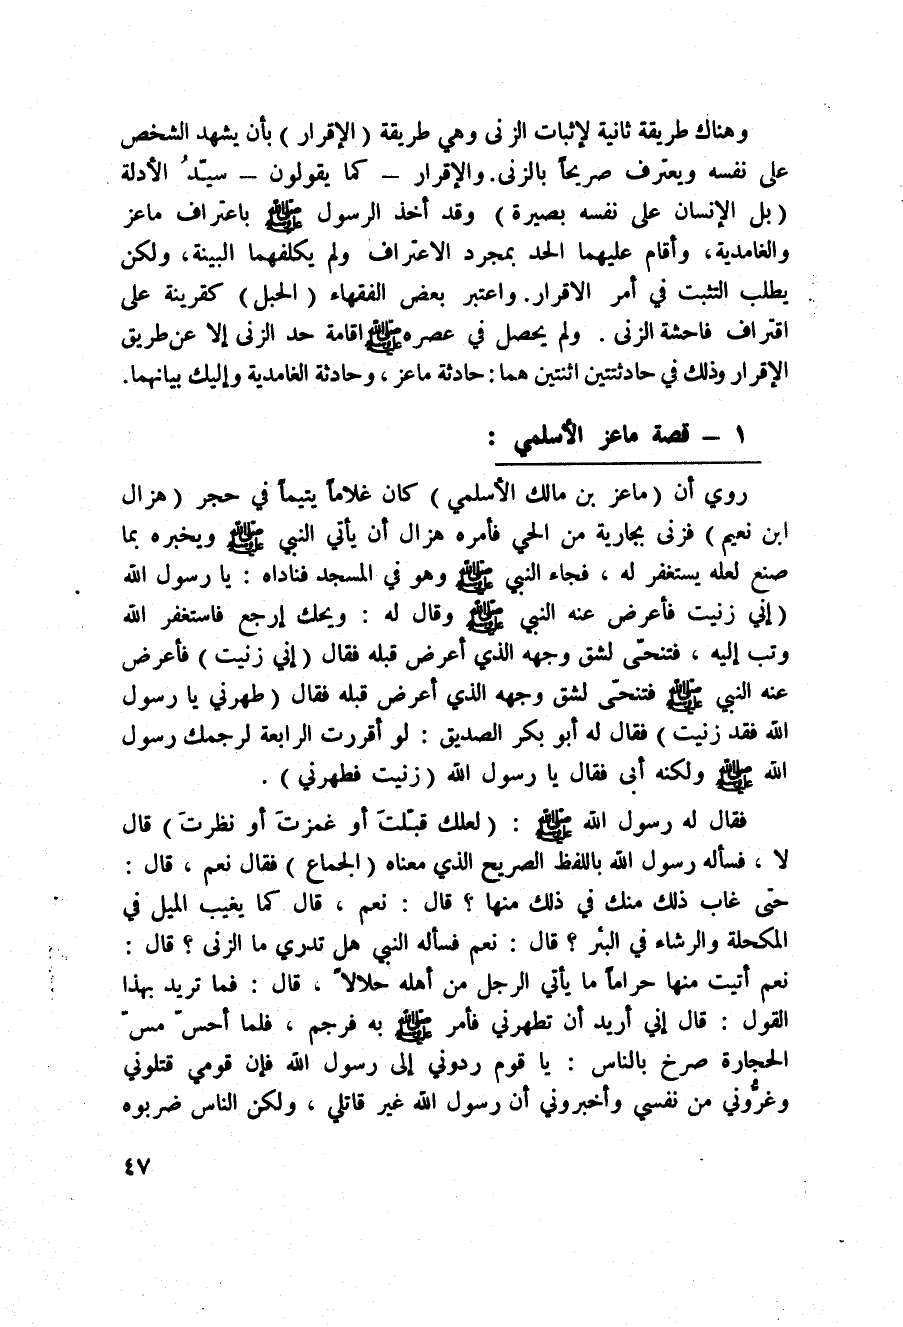 وهناك طريقة ثانية لإثبات الزنى وهي طريقة ( الإقرار ) بأن يشهد الشخص
على نفسه ويعترف صريحاً بالزنى. والإقرار – كما يقولون – سيّدُ الأدلة
( بل الإنسان على نفسه بصيرة ) وقد أخذ الرسول ﷺ باعتراف ماعز
والغامدية، وأقام عليهما الحد بمجرد الاعتراف ولم يكلفهما البينة، ولكن
يطلب التثبت في أمر الاقرار. واعتبر بعض الفقهاء ( الحبل ) كقرينة على
اقتراف فاحشة الزنى . ولم يحصل في عصره ﷺ اقامة حد الزنى إلا عن طريق
الإقرار وذلك في حادثتين اثنتين هما : حادثة ماعز ، وحادثة الغامدية وإليك بيانهما.
١ – قصة ماعز الأسلمي :
روي أن ( ماعز بن مالك الأسلمي ) كان غلاماً يتيماً في حجر ( هزال
ابن نعيم ) فزنى بجارية من الحي فأمره هزال أن يأتي النبي ﷺ ويخبره بما
صنع لعله يستغفر له ، فجاء النبي ﷺ وهو في المسجد فناداه : يا رسول الله
( إني زنيت فأعرض عنه النبي ﷺ وقال له : ويحك إرجع فاستغفر الله
وتب إليه ، فتنحّى لشق وجهه الذي أعرض قبله فقال ( إني زنيت ) فأعرض
عنه النبي ﷺ فتنحّى لشق وجهه الذي أعرض قبله فقال ( طهرني يا رسول
الله فقد زنيت ) فقال له أبو بكر الصديق : لو أقررت الرابعة لرجمك رسول
الله ﷺ ولكنه أبى فقال يا رسول الله ( زنيت فطهرني ) .
فقال له رسول الله ﷺ : ( لعلك قبّلتَ أو غمزتَ أو نظرتَ ) قال
لا ، فسأله رسول الله باللفظ الصريح الذي معناه ( الجماع ) فقال نعم ، قال :
حتى غاب ذلك منك في ذلك منها ؟ قال : نعم ، قال كما يغيب الميل في
المكحلة والرشاء في البئر ؟ قال : نعم فسأله النبي هل تدري ما الزنى ؟ قال :
نعم أتيت منها حراماً ما يأتي الرجل من أهله حلالاً ، قال : فما تريد بهذا
القول : قال إني أريد أن تطهرني فأمر ﷺ به فرجم ، فلما أحسّ مسّ
الحجارة صرخ بالناس : يا قوم ردوني إلى رسول الله فإن قومي قتلوني
وغرُّوني من نفسي وأخبروني أن رسول الله غير قاتلي ، ولكن الناس ضربوه
٤٧